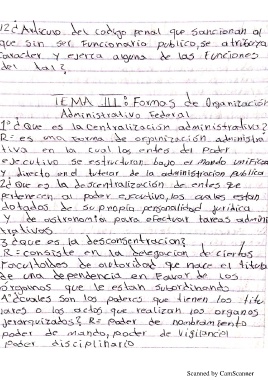 12¿ Articulo del codigo penal que sancionan al
que sin ser Funcionario publico, se atribuya
caracter y ejerza alguna de las Funciones
del tal?
TEMA III: Formas de Organización
Administrativo Federal
1° ¿Que es la Centralización administrativa?
R= es una forma de organización administra
tiva en la cual los entes del Poder
ejecutivo se estructuran bajo el mando unifica
y directo en el titular de la administracion publica
2¿ Que es la descentralización de entes que
pertenecen al poder ejecutivo, los cuales estan
dotados de su propia personalidad juridica
y de autronomia para efectuar tareas admini
trativos
3 ¿que es la desconsentracion?
R= consiste en la delegacion de ciertas
Facultades de autoridad que hace el titula
de una dependencia en Favor de los
órganos que le estan subordinando
4° ¿cuales son los poderes que tienen los titu
lares o los actos que realizan los organos
jerarquizados? R= poder de nombramiento
poder de mando, poder de vigilancia
poder disciplinario
Scanned by CamScanner